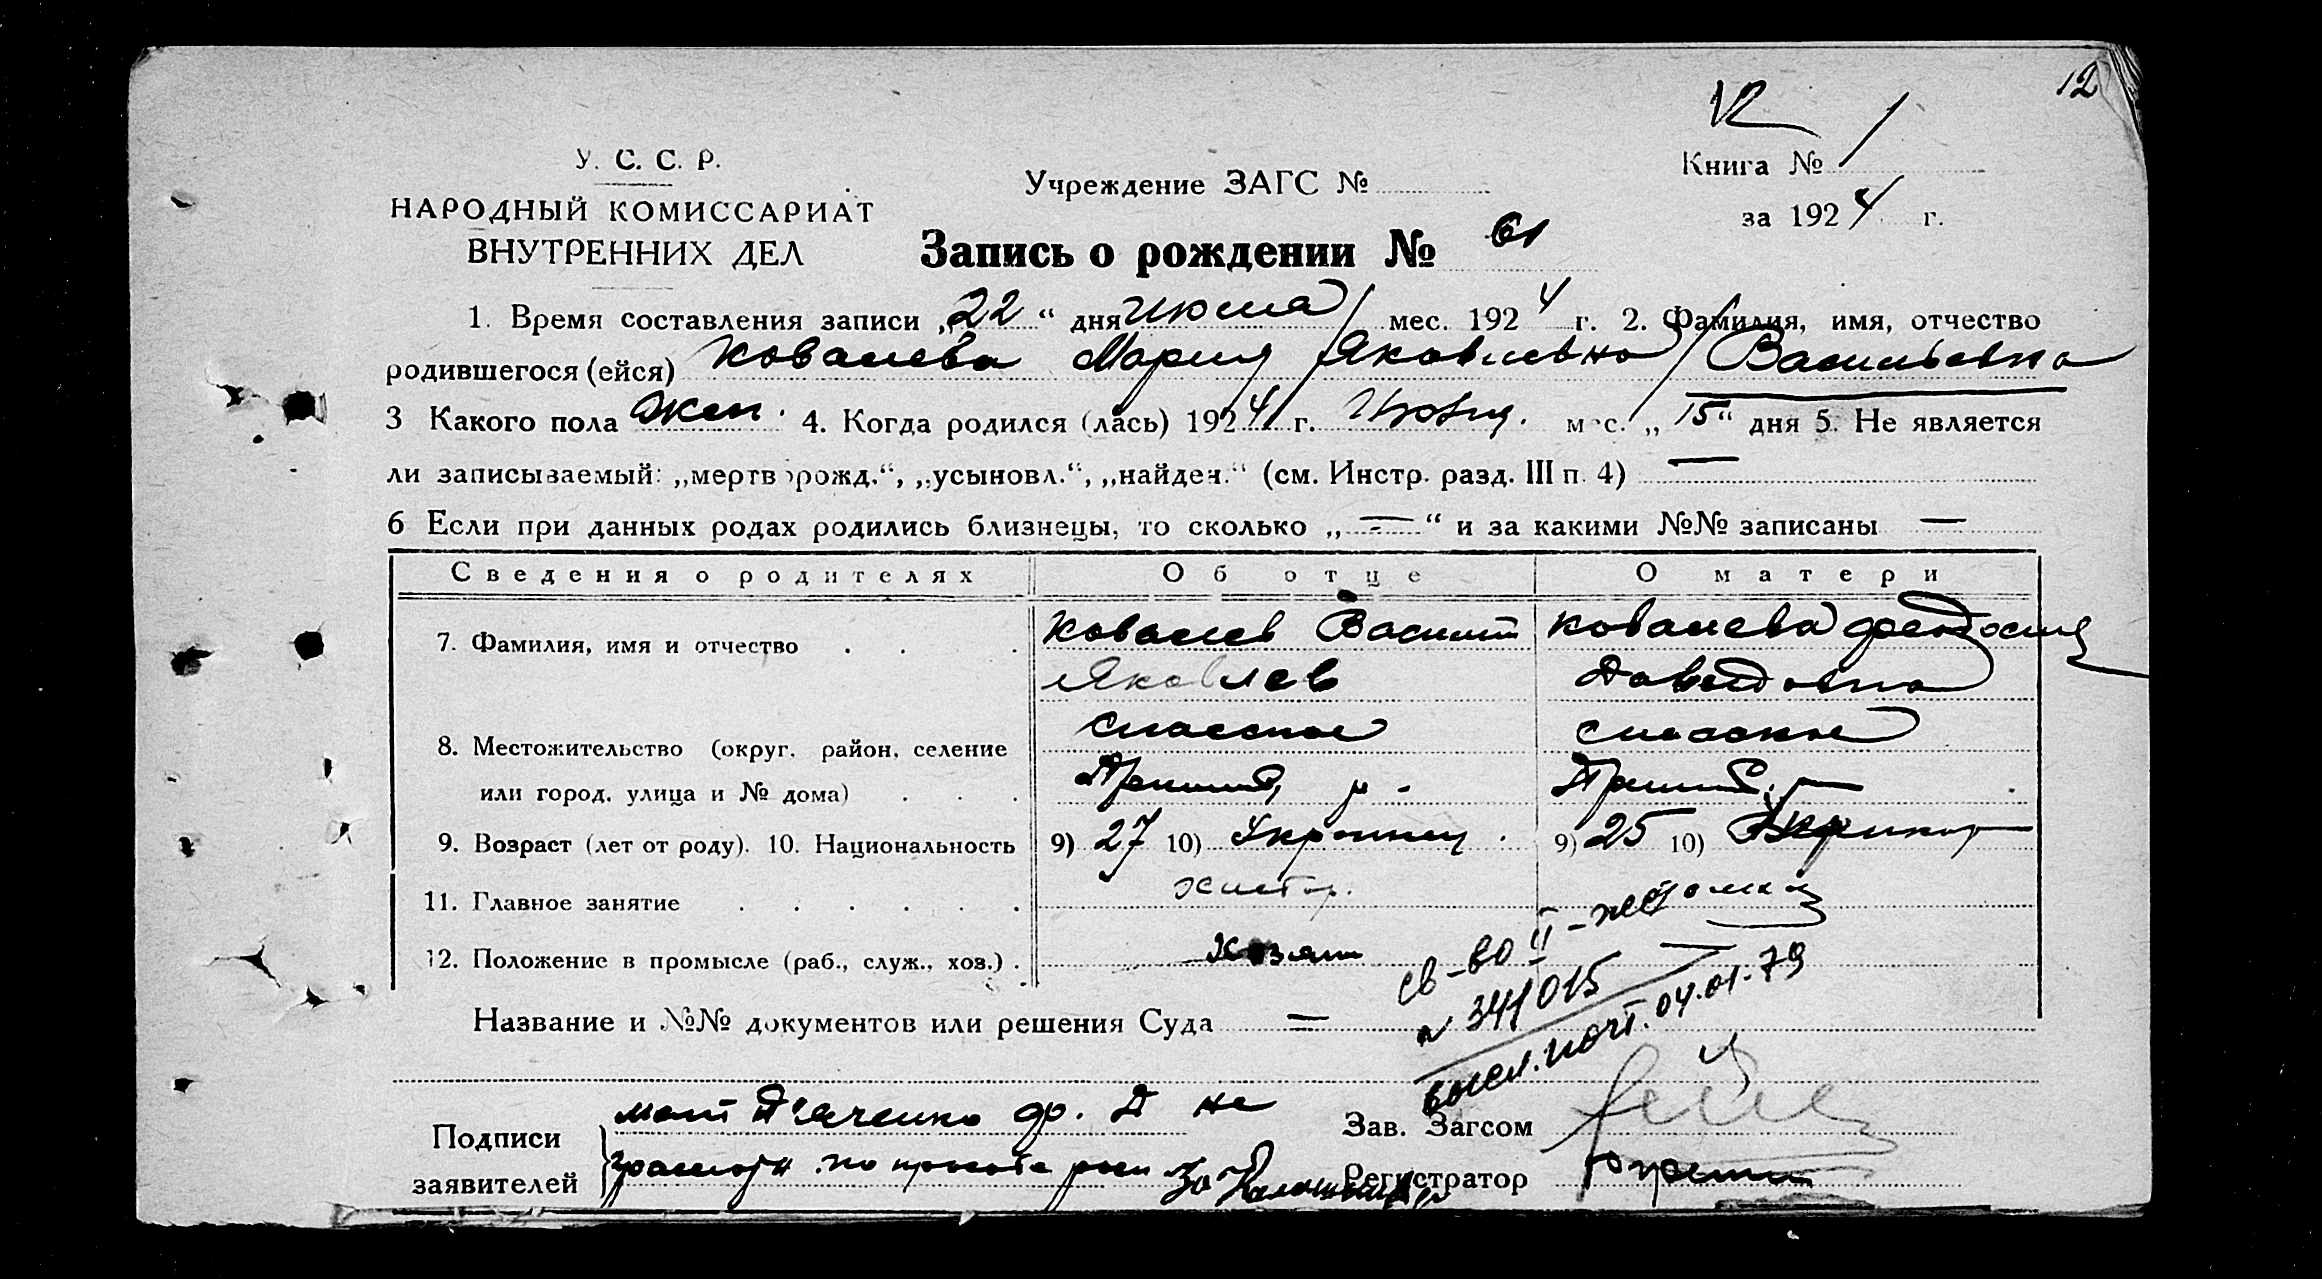 12
У. С. С. Р.
НАРОДНЫЙ КОМИССАРИАТ
ВНУТРЕННИХ ДЕЛ
Учреждение ЗАГС №
Книга № 1
за 1924 г.
Запись о рождении № 61
1. Время составления записи „22“ дня июля мес. 1924 г. 2. Фамилия, имя, отчество
родившегося (ейся) Ковалева Мария Яковлевна Васильевна
3 Какого пола Жен. 4. Когда родился (лась) 1924 г. мес. „15“ дня 5. Не является
ли записываемый: „мертворожд.“, „усыновл.“, „найден.“ (см. Инстр. разд. III п. 4) —
6 Если при данных родах родились близнецы, то сколько „—“ и за какими №№ записаны —
Сведения о родителях Об отце О матери
7. Фамилия, имя и отчество Ковалев Василий Ковалева Феодосия
Яковлев Давидовна
8. Местожительство (округ, район, селение Спасское Спасское
или город, улица и № дома)
9. Возраст (лет от роду). 10. Национальность 9) 27 10) Украинец 9) 25 10)
11. Главное занятие
12. Положение в промысле (раб., служ., хоз.) Хозяин
св-во II-ЖЕ
№ 341015
высл. почт. 04.01.79
Название и №№ документов или решения Суда —
Подписи
заявителей
мать Дьяченко Ф. Д не
Зав. Загсом
Регистратор